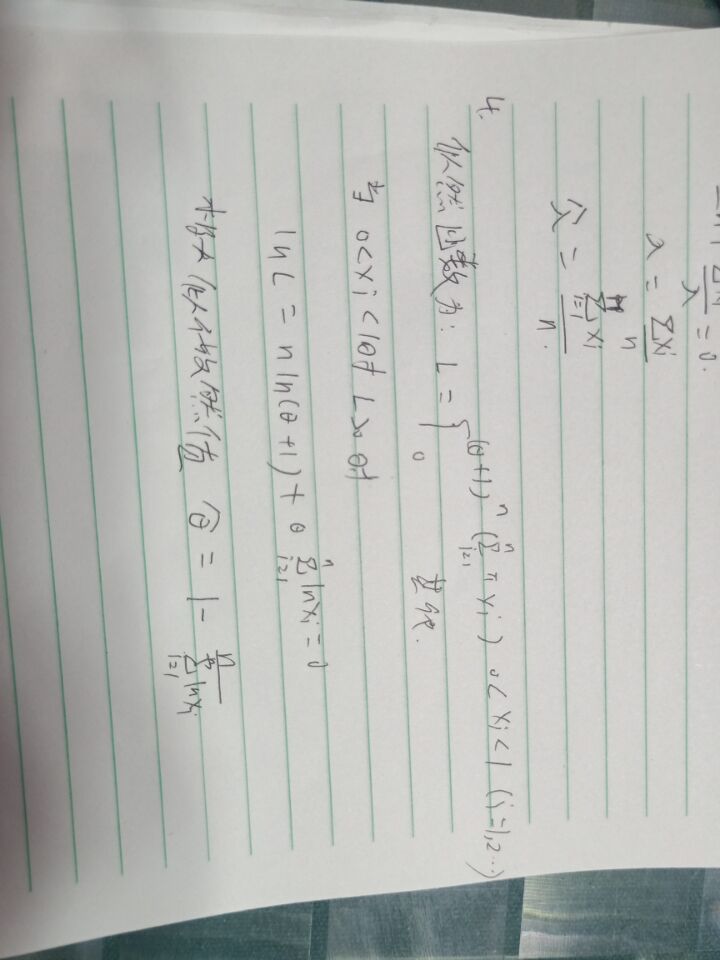 λ = 0.
λ = ∑xi / n
λ̂ = ∑_{i=1}^{n} xi / n.
4.
似然函数为: L = { (θ+1)^n (∑_{i=1}^{n} π xi) 0<xi<1 (i=1,2…)
0 其他.
当 0<xi<1时 L>0时
lnL = n ln(θ+1) + θ ∑_{i=1}^{n} lnxi = 0
θ̂ = 1 - n / ∑_{i=1}^{n} lnxi